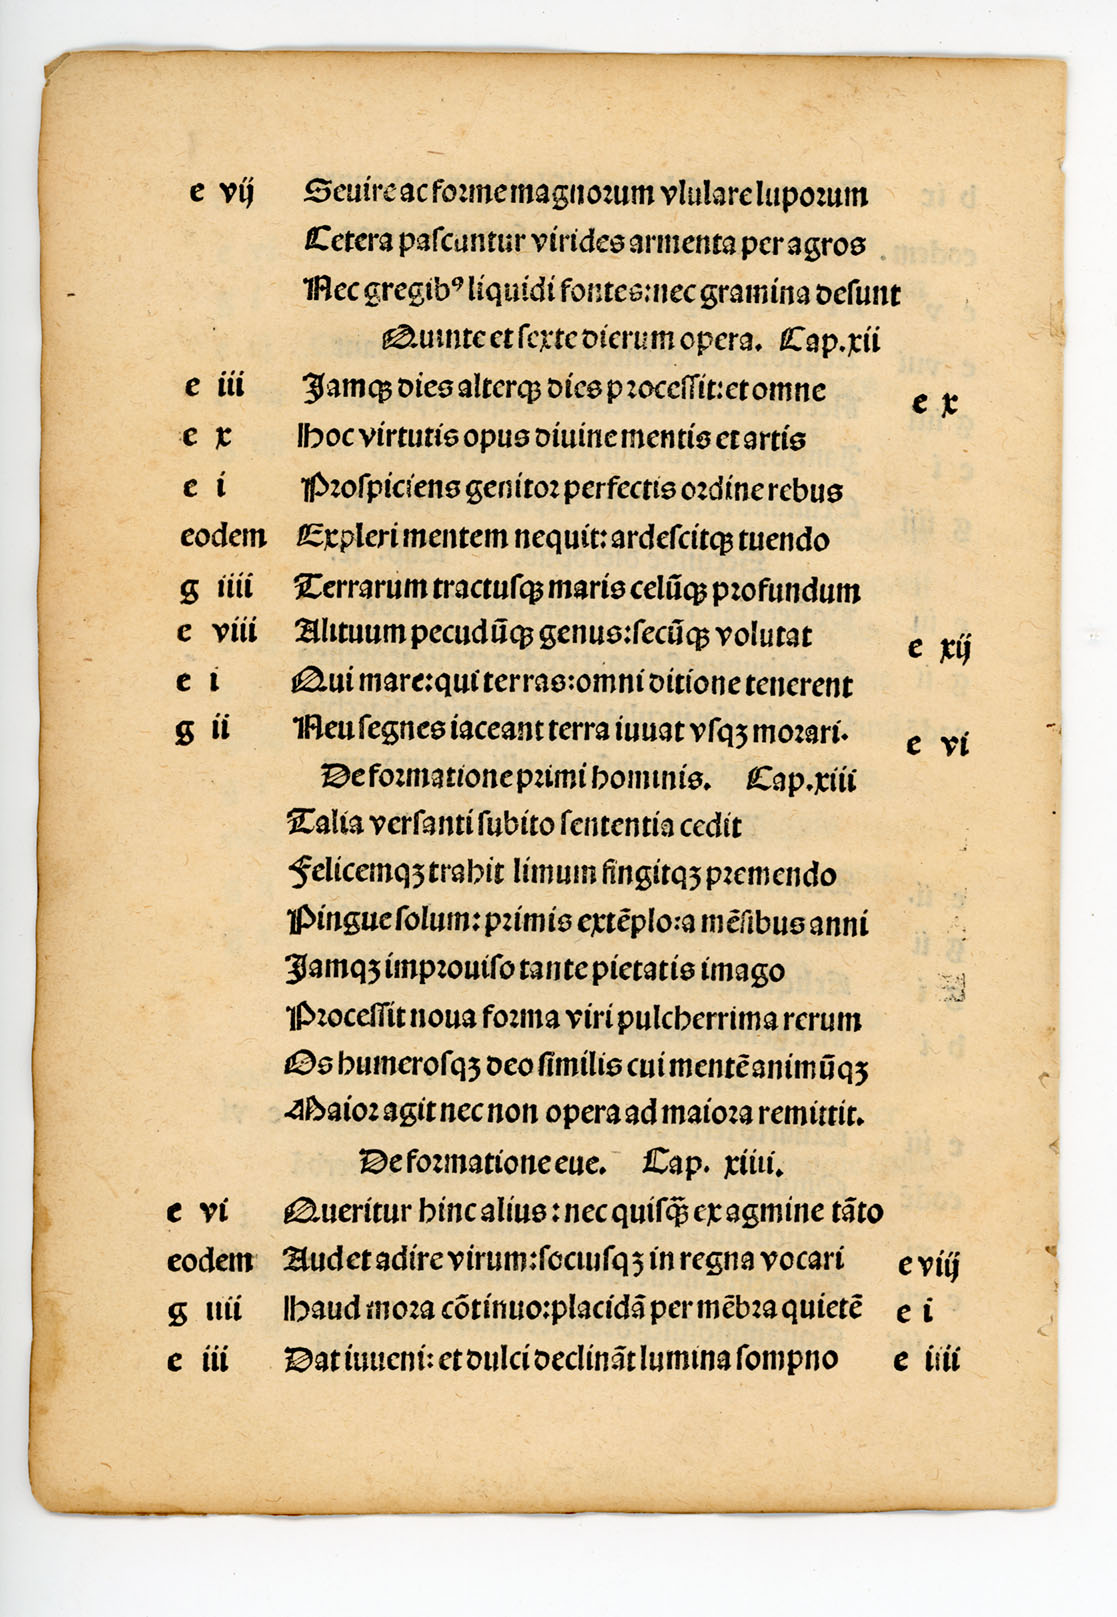 e vij Seuire ac forme magnorum vlulare luporum
Cetera pascuntur virides armenta per agros
Nec gregibꝰ liquidi fontes: nec gramina desunt
Quinte et sexte dierum opera. Cap. xii
e iii Jamqꝫ dies alterqꝫ dies processit: et omne e x
e x Hoc virtutis opus diuine mentis et artis
e i Prospiciens genitor perfectis ordine rebus
eodem Expleri mentem nequit: ardescitqꝫ tuendo
g iiii Terrarum tractusqꝫ maris celũqꝫ profundum
e viii Alituum pecudũqꝫ genus: secũqꝫ volutat e xij
e i Qui mare: qui terras: omni ditione tenerent
g ii Neu segnes iaceant terra iuuat vsqꝫ morari. e vi
De formatione primi hominis. Cap. xiii
Talia versanti subito sententia cedit
Felicemqꝫ trahit limum fingitqꝫ premendo
Pingue solum: primis extẽplo: a mẽsibus anni
Jamqꝫ improuiso tante pietatis imago
Processit noua forma viri pulcherrima rerum
Os humerosqꝫ deo similis cui mentẽ animũqꝫ
Maior agit nec non opera ad maiora remittit.
De formatione eue. Cap. xiiii.
e vi Queritur hinc alius: nec quisq̃ ex agmine tãto
eodem Audet adire virum: sociusqꝫ in regna vocari e viij
g iiii Haud mora cõtinuo: placidã per mẽbra quietẽ e i
e iii Dat iuueni: et dulci declinãt lumina sompno e iiii